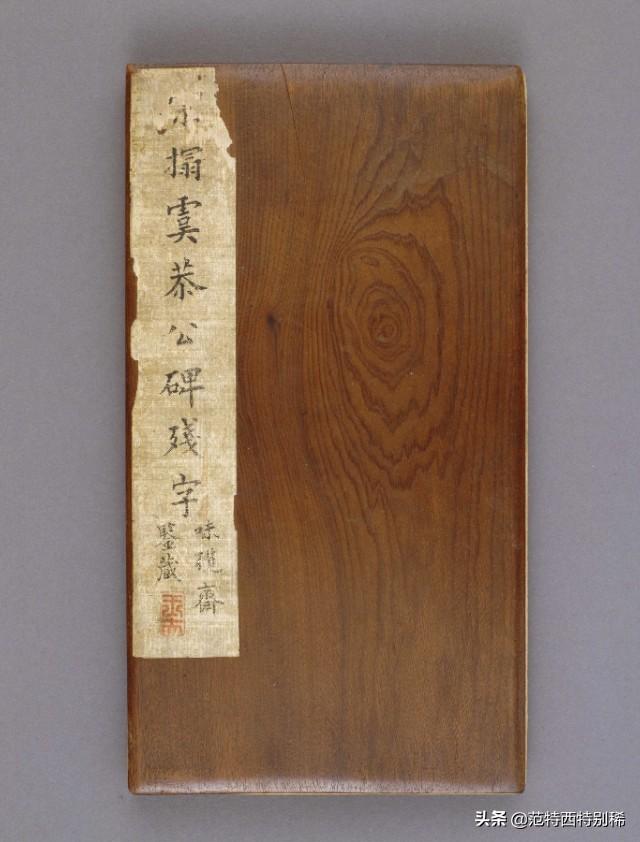 宋搨虞恭公碑殘字
味齋
鑒藏
头条 @范特西特别稀